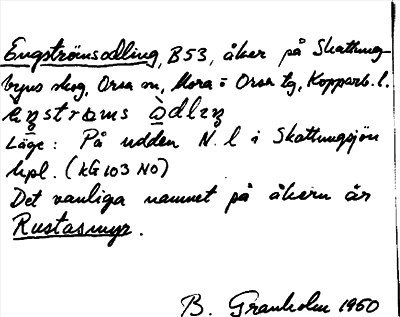 Engströmsodling, B53, åker på Skattung-
byns skog, Orsa sn, Mora o Orsa tg, Kopparb. l.
Läge: På udden N. l i Skattungsjön
hpl. (KG 103 NO)
Det vanliga namnet på åkern är
Rustasmyr.
B. Granholm 1950